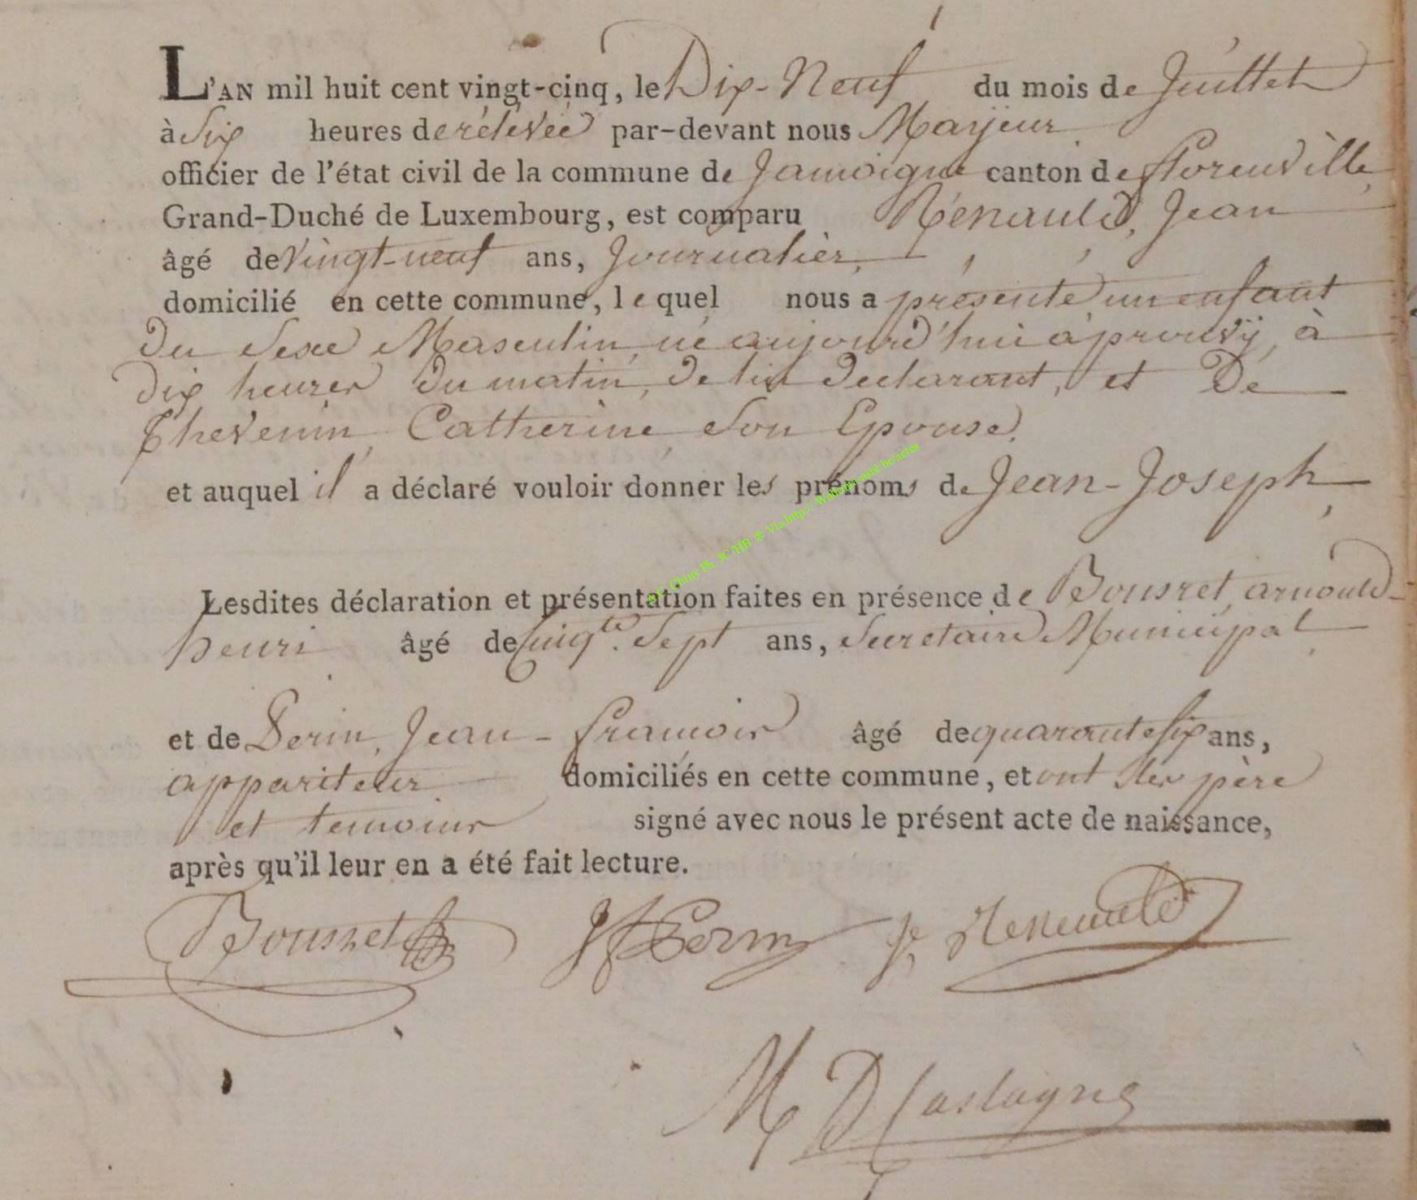 L'AN mil huit cent vingt-cinq, le Dix-Neuf du mois de Juillet
à Six heures de rélévée par-devant nous Mayeur
officier de l'état civil de la commune de Jamoigne canton de florenville,
Grand-Duché de Luxembourg, est comparu Renauld, Jean
âgé de Vingt-neuf ans, Journalier,
domicilié en cette commune, lequel nous a présenté un enfant
du Sexe Masculin, né aujourd'hui à prouvÿ, à
dix heures du matin, de lui déclarant, et De
Thevenin Catherine son Epouse.
et auquel il a déclaré vouloir donner les prénoms de Jean-Joseph,
Lesdites déclaration et présentation faites en présence de Bousret, arnould-
henri âgé de Cinqte. Sept ans, Secretaire Municipal
et de Perin, Jean-francois âgé de quarante six ans,
appariteur domiciliés en cette commune, et ont les père
et temoins signé avec nous le présent acte de naissance,
après qu'il leur en a été fait lecture.
Bousret JF Perin J. Renauld
M D Castagne